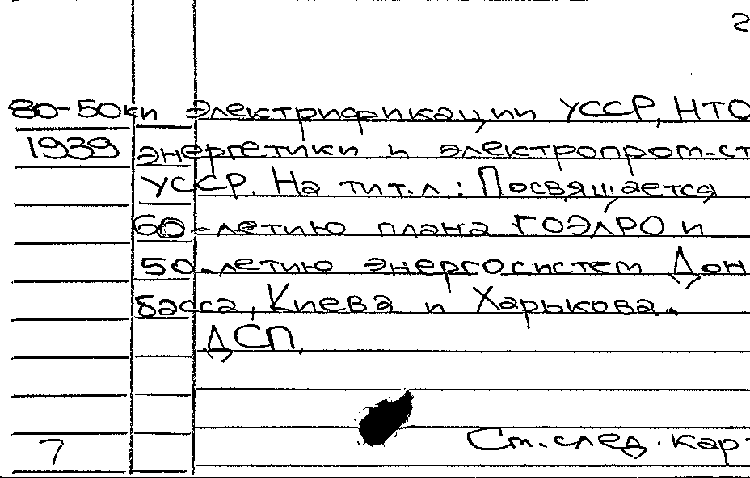 2
80-50ки электрификации УССР, НТО
1939 энергетики и электропром-ст
УССР. На тит.л: Посвящается
60-летию плана ГОЭЛРО и
50-летию энергосистем Дон
басса, Киева и Харькова.
ДСП.
7 См.след.кар